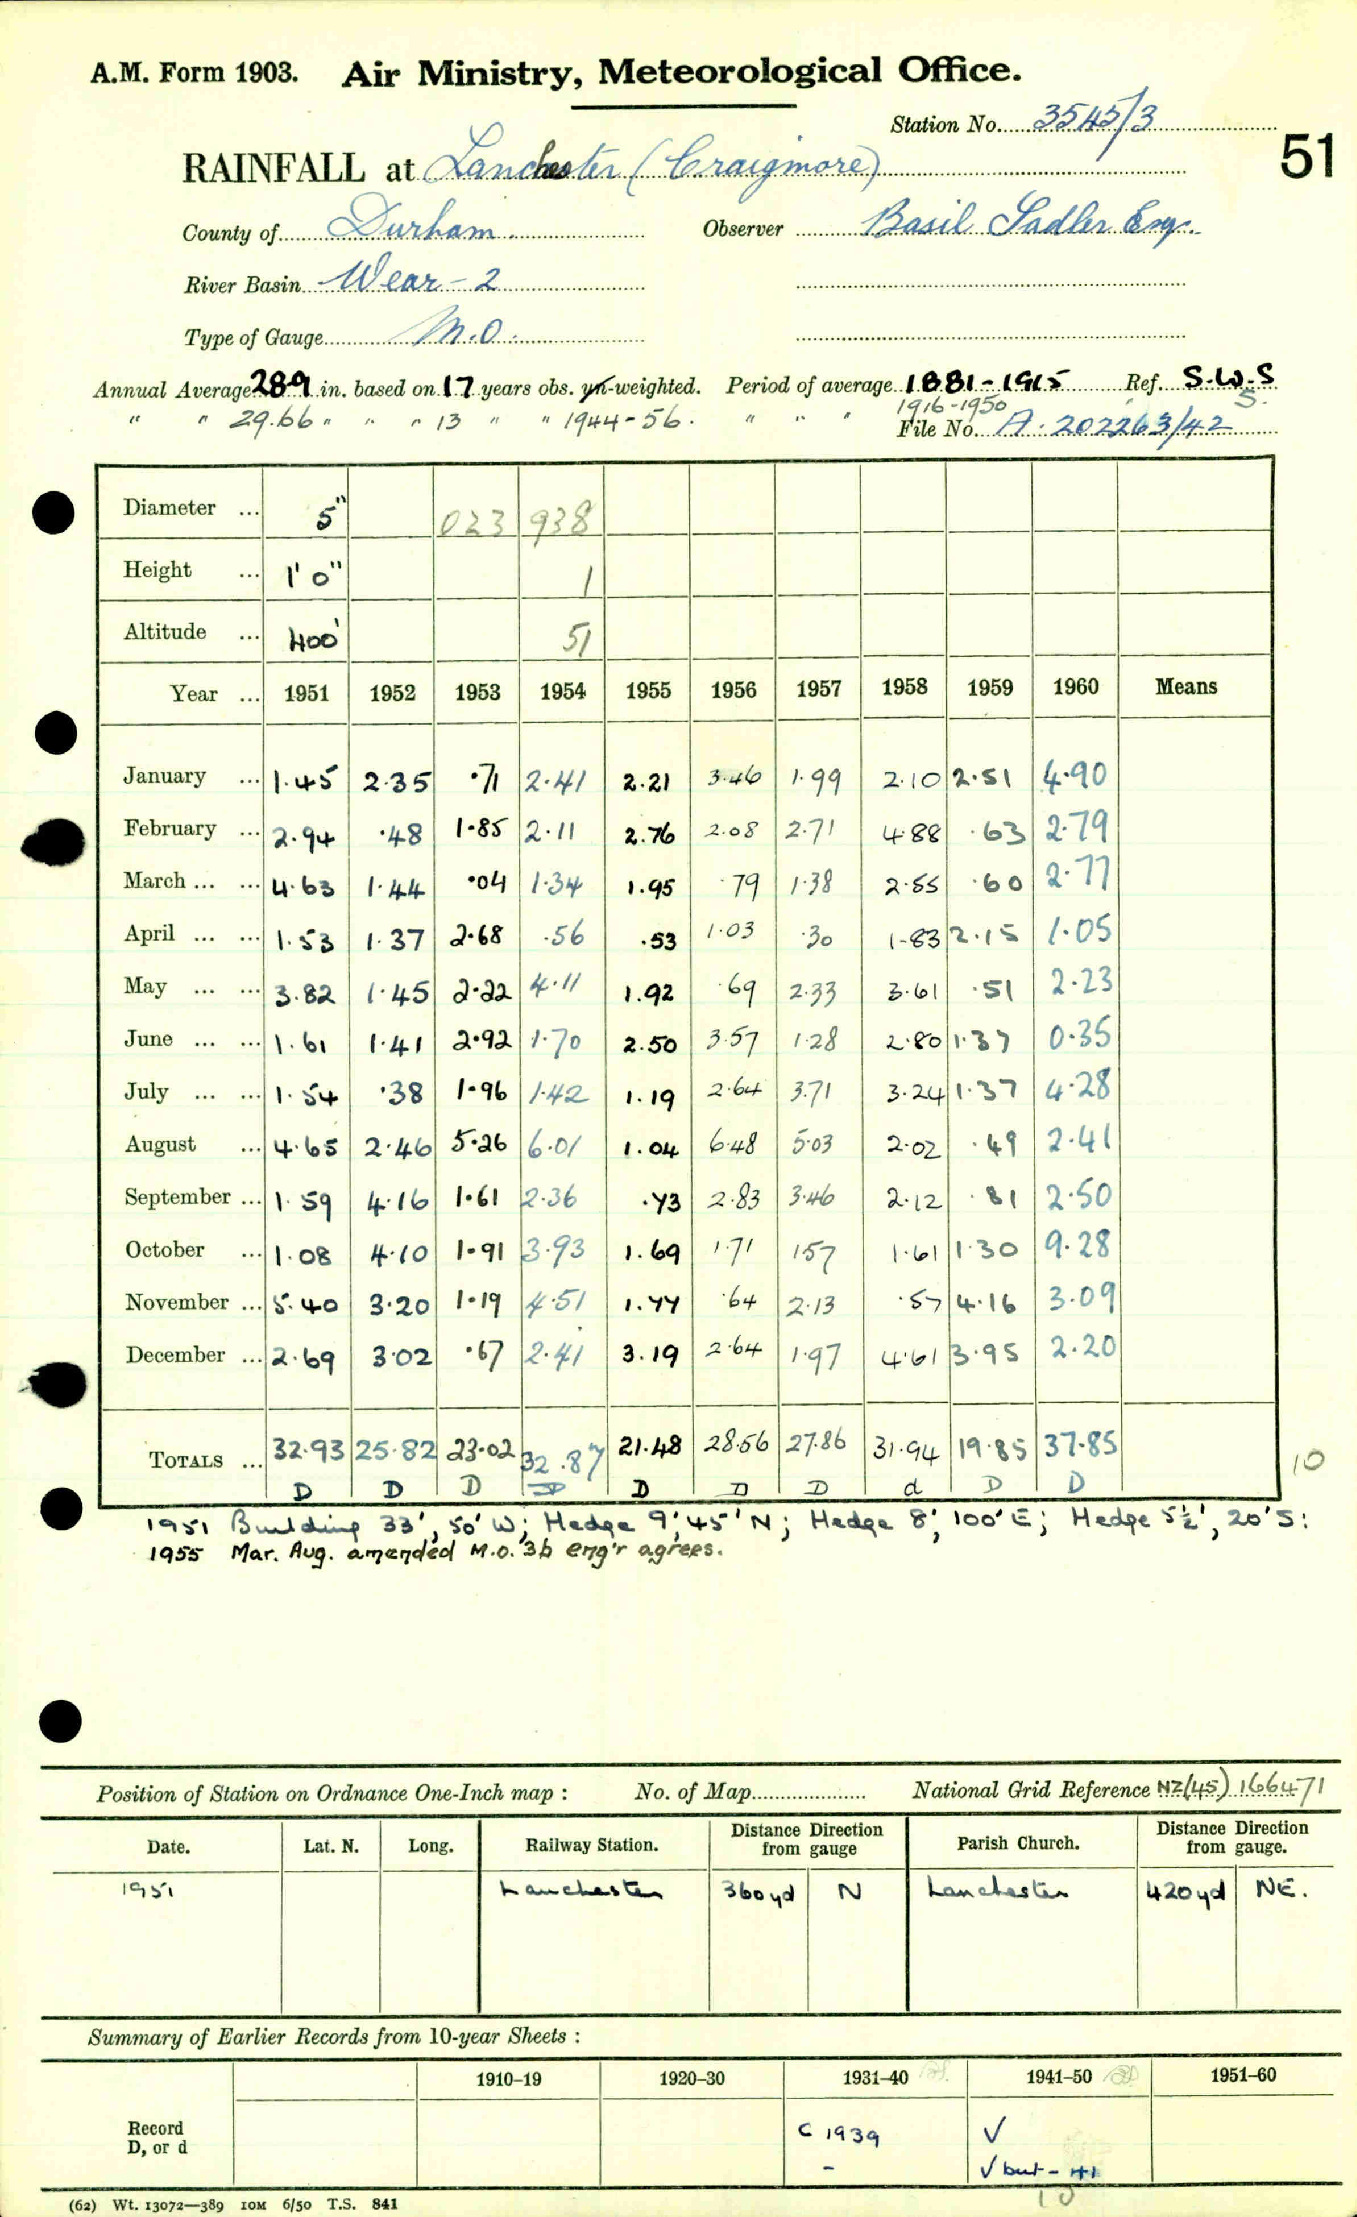 A.M. Form 1903. Air Ministry, Meteorological Office.
Station No. 3545/3
51
RAINFALL at Lanchester (Craigmore)
County of Durham. Observer Basil Sadler Esq.
River Basin Wear-2
Type of Gauge M.O.
Annual Average 28.9 in. based on 17 years obs. un-weighted. Period of average 1881-1915 Ref. S.W.S
" " 29.66 " " " 13 " " 1944-56. " " " 1916-1950 " S.
File No. A.202263/42
Diameter ... 5" 023 938
Height ... 1' 0" 1
Altitude ... 400' 51
Year ... 1951 1952 1953 1954 1955 1956 1957 1958 1959 1960 Means
January ... 1.45 2.35 .71 2.41 2.21 3.46 1.99 2.10 2.51 4.90
February ... 2.94 .48 1.85 2.11 2.76 2.08 2.71 4.88 .63 2.79
March ... ... 4.63 1.44 .04 1.34 1.95 .79 1.38 2.55 .60 2.77
April ... ... 1.53 1.37 2.68 .56 .53 1.03 .30 1.83 2.15 1.05
May ... ... 3.82 1.45 2.22 4.11 1.92 .69 2.33 3.61 .51 2.23
June ... ... 1.61 1.41 2.92 1.70 2.50 3.57 1.28 2.80 1.37 0.35
July ... ... 1.54 .38 1.96 1.42 1.19 2.64 3.71 3.24 1.37 4.28
August ... 4.65 2.46 5.26 6.01 1.04 6.48 5.03 2.02 .49 2.41
September ... 1.59 4.16 1.61 2.36 .73 2.83 3.46 2.12 .81 2.50
October ... 1.08 4.10 1.91 3.93 1.69 1.71 1.57 1.61 1.30 9.28
November ... 5.40 3.20 1.19 4.51 1.77 .64 2.13 .57 4.16 3.09
December ... 2.69 3.02 .67 2.41 3.19 2.64 1.97 4.61 3.95 2.20
TOTALS ... 32.93 25.82 23.02 32.87 21.48 28.56 27.86 31.94 19.85 37.85 10
D D D D D D D d D D
1951 Building 33', 50' W; Hedge 9', 45' N; Hedge 8', 100' E; Hedge 5½', 20' S:
1955 Mar. Aug. amended M.O. 3b eng'r agrees.
Position of Station on Ordnance One-Inch map : No. of Map National Grid Reference NZ(45) 166471
Date. Lat. N. Long. Railway Station. Distance Direction from gauge Parish Church. Distance Direction from gauge.
1951 Lanchester 360yd N Lanchester 420yd NE.
Summary of Earlier Records from 10-year Sheets :
1910–19 1920–30 1931–40 1941–50 1951–60
Record C 1939 √
D, or d - √ but - 41
10
(62) Wt. 13072—389 10M 6/50 T.S. 841